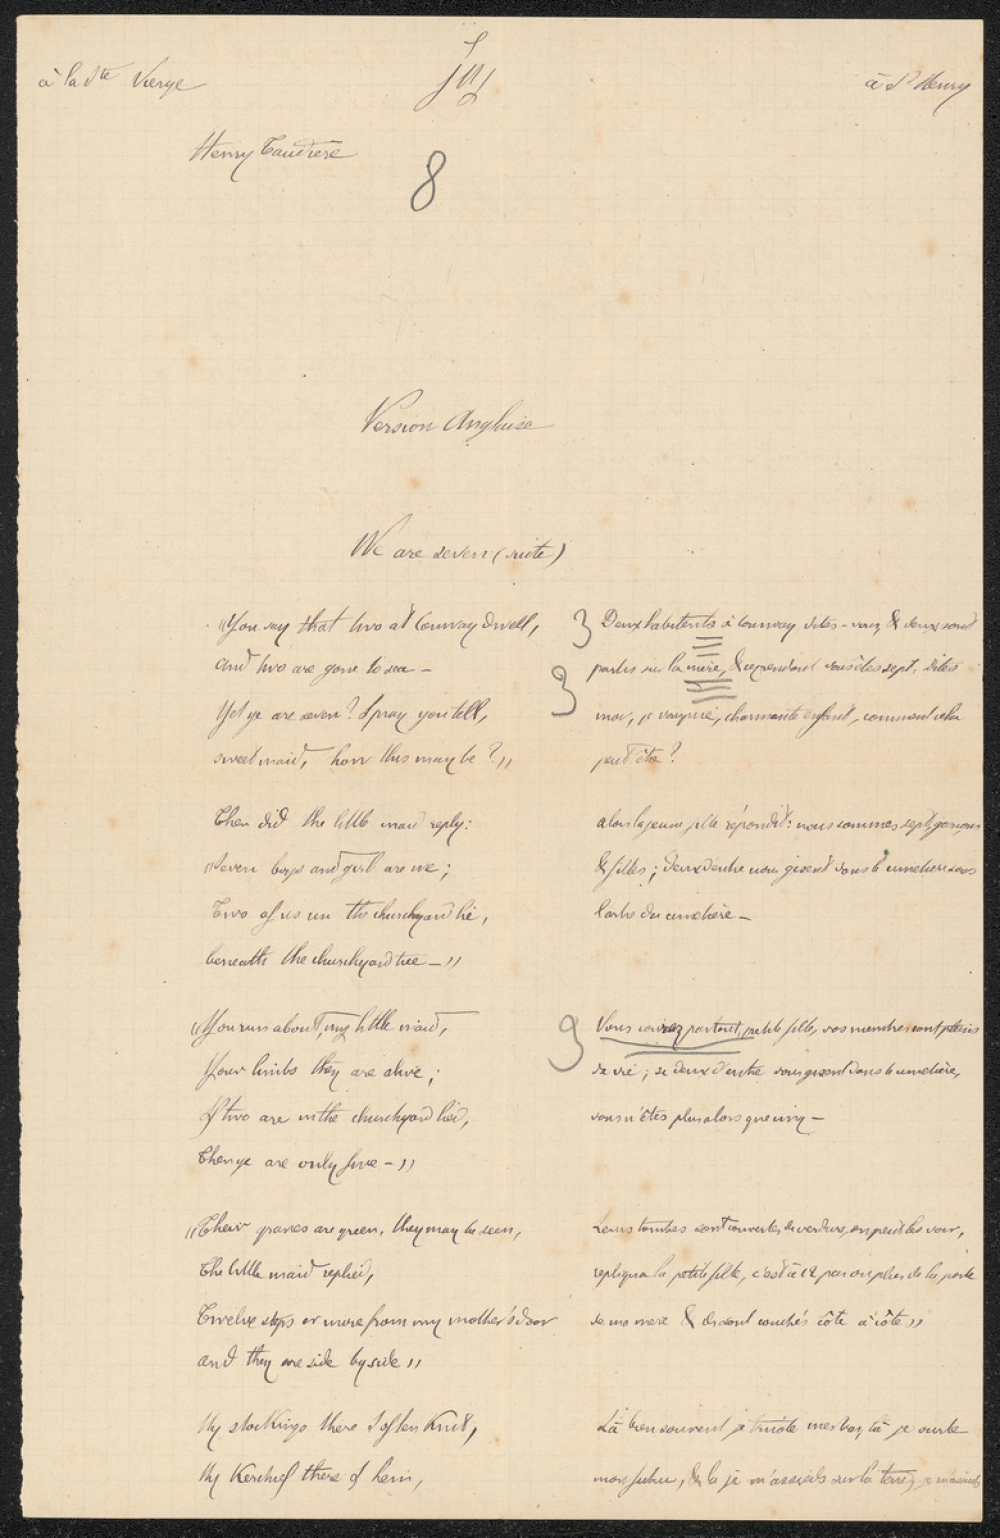 à la Ste Vierge
à St Henry
Henry
8
Version Anglaise
We are seven (suite)
"You say that two at Conway dwell,
and two are gone to sea -
Yet ye are seven? I pray you tell,
sweet maid, how this may be?"
Then did the little maid reply:
"Seven boys and girl are we;
Two of us in the churchyard lie,
beneath the churchyard tree -"
"You run about, my little maid,
Your limbs they are alive;
If two are in the churchyard lied,
Then ye are only five -"
"Their graves are green, they may be seen,
The little maid replied,
Twelve steps or more from my mother's door
and they are side by side"
My stockings there I often knit,
My Kerchief there I hem,
3 Deux habitents à Conway, dites-vous, & deux sont
3 partis sur la mère, & cependant vous êtes sept. dites
moi, je vous prie, charmante enfant, comment cela
peut être?
alors la jeune fille répondit: nous sommes sept, garçons
& filles; deux d'entre nous gisent dans le cimetière sous
l'arbre du cimetière -
3 Vous courez partout, petite fille, vos membres sont pleins
de vie; si deux d'entre vous gisent dans le cimetière,
vous n'êtes plus alors que cinq -
Leurs tombes sont couvertes de verdure, on peut les voir,
repliqua la petite fille, c'est à 12 pas ou plus de la porte
de ma mere & ils sont couchés côte à côte"
Là bien souvent je tricote mes bas, là je ourle
mon fichu, & la je m'assieds sur la terre,